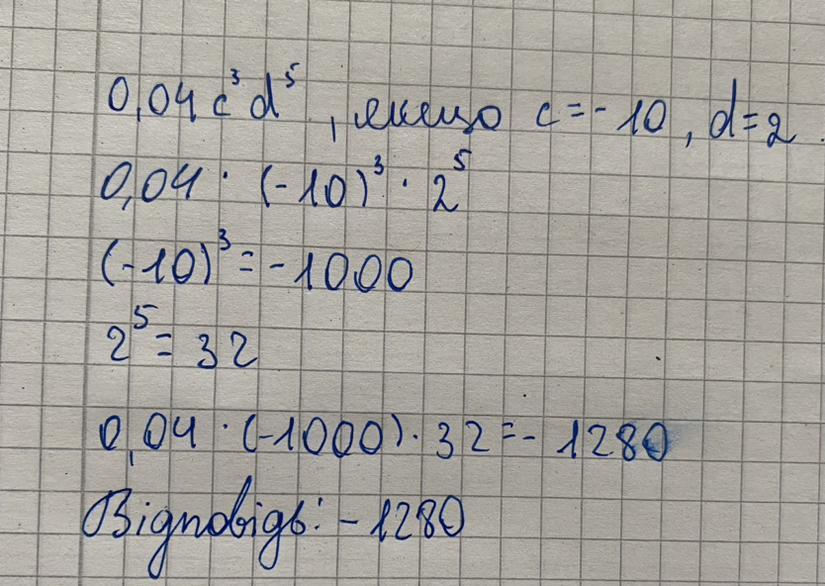 0,04c³d⁵, якщо c=-10, d=2.
0,04 · (-10)³ · 2⁵
(-10)³ = -1000
2⁵ = 32
0,04 · (-1000) · 32 = - 1280
Відповідь: -1280